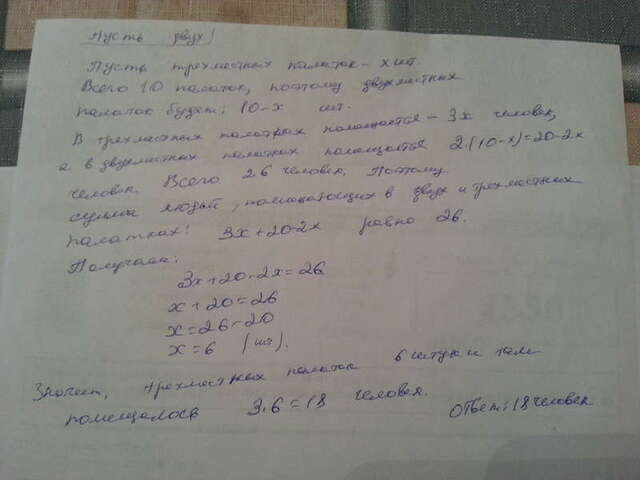 Пусть двух
Пусть трехместных палаток - х шт.
Всего 10 палаток, поэтому двухместных
палаток будет: 10-х шт.
В трехместных палатках помещается - 3х человек,
а в двухместных палатках помещается 2·(10-х)=20-2х
человек. Всего 26 человек. Поэтому
сумма людей, помещающихся в двух и трехместных
палатках: 3х+20-2х равно 26.
Получаем:
3х+20-2х=26
х+20=26
х=26-20
х=6 (шт).
Значит, трехместных палаток 6 штук и там
помещалось 3·6=18 человек.
Ответ: 18 человек